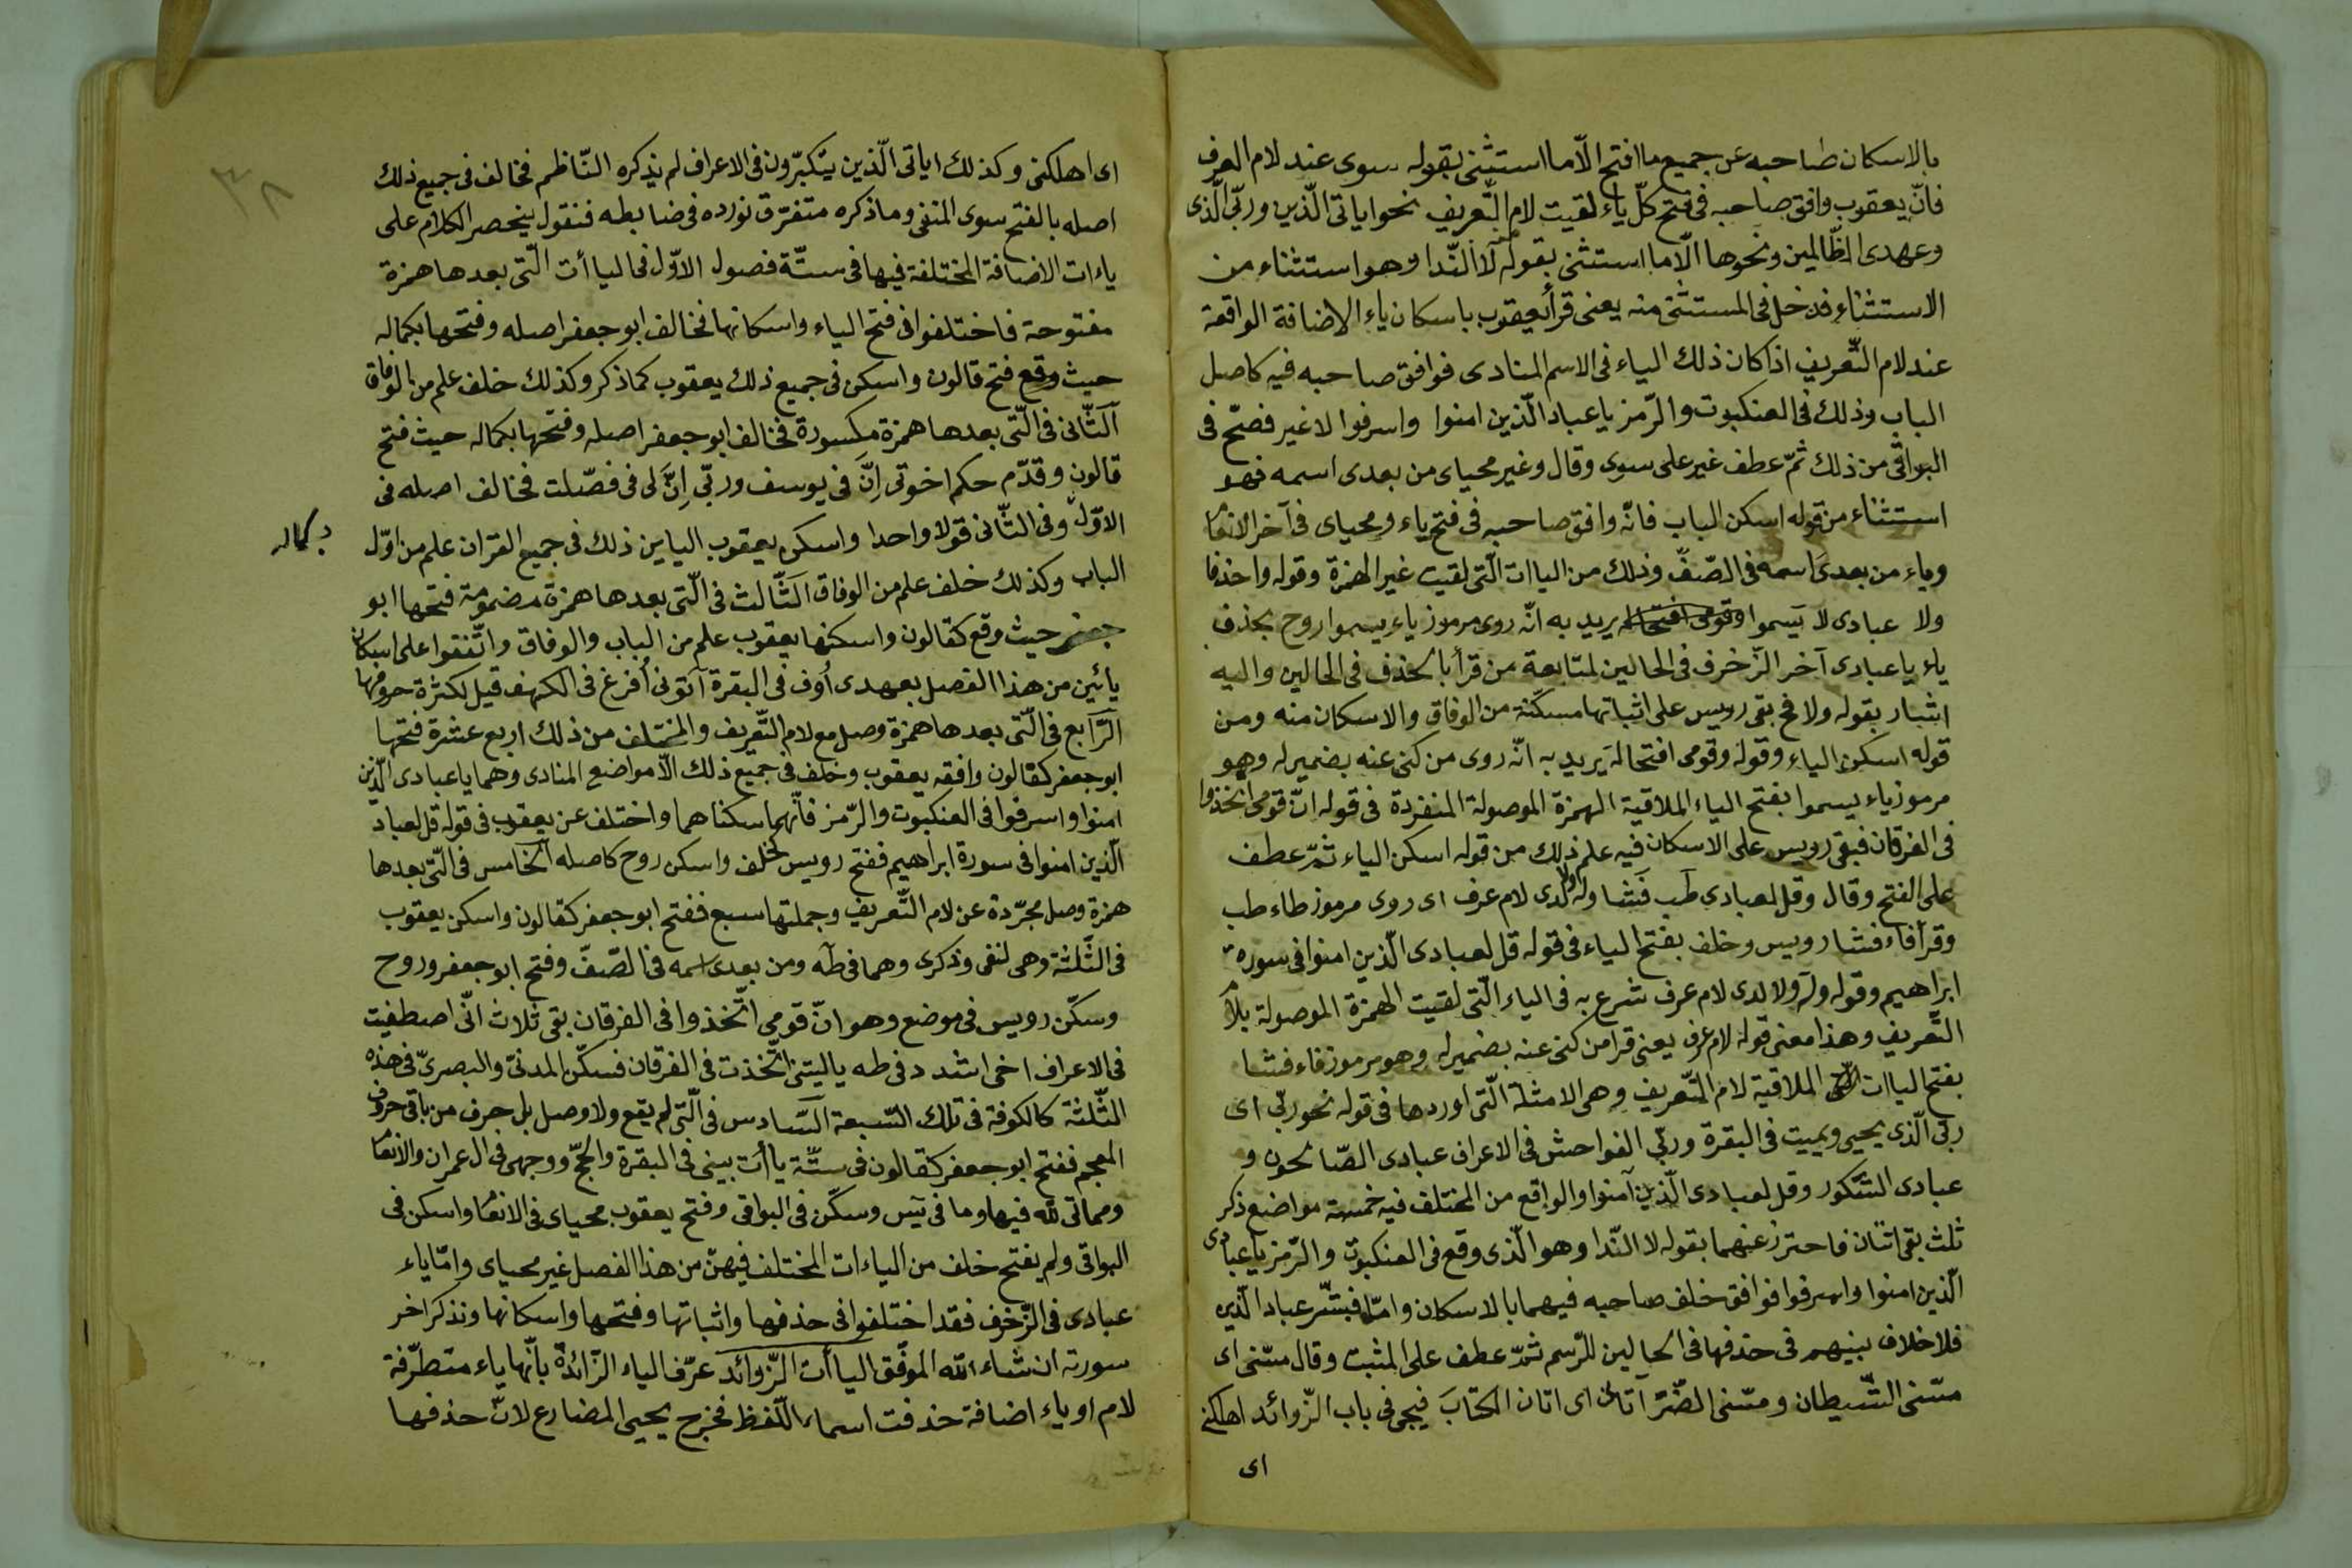 بالاسكان صاحبه عن جميع ما افتح الّا ما استثنى بقوله سوى عند لام العرف
فانّ يعقوب وافق صاحبه فى فتح كلّ ياء لقيت لام التّعريف نحو اياتى الّذين وربّى الّذى
وعهدى الظّالمين ونحوها الّا ما استثنى بقوله لا النّدا وهو استثناء من
الاستثناء فدخل فى المستثنى منه يعنى قرأ يعقوب باسكان ياء الاضافة الواقعة
عند لام التّعريف اذا كان ذلك الياء فى الاسم المنادى فوافق صاحبه فيه كاصل
الباب وذلك فى العنكبوت والزّمر يا عباد الّذين امنوا واسرفوا لا غير فصحّ فى
البواقى من ذلك ثمّ عطف غير على سوى وقال وغير محياى من بعدى اسمه فهو
استثناء من قوله اسكن الباب فانّه وافق صاحبه فى فتح ياء ومحياى فى آخر الانعام
وياء من بعدى اسمه فى الصّفّ وذلك من الياات الّتى لقيت غير الهمزة وقوله واحذفا
ولا عبادى لا يسموا وقومى افتحا له يريد به انّه روى مرموز ياء يسموا روح بحذف
ياء يا عبادى آخر الزّخرف فى الحالين لمتابعة من قرأ بالحذف فى الحالين واليه
اشار بقوله ولا فح بقى رويس على اثباتها مسكّنة من الوفاق والاسكان منه ومن
قوله اسكن الياء وقوله وقومى افتحا له يريد به انّه روى من كنى عنه بضمير له وهو
مرموز ياء يسموا بفتح الياء الملاقية الهمزة الموصولة المنفردة فى قوله انّ قومى اتخذوا
فى الفرقان فبقى رويس على الاسكان فيه علم ذلك من قوله اسكن الياء ثمّ عطف
على الفتح وقال وقل لعبادى طب فشا وله ولا لدى لام عرف اى روى مرموز طاء طب
وقرأ فاء فشا رويس وخلف بفتح الياء فى قوله قل لعبادى الّذين امنوا فى سورة
ابراهيم وقوله وله ولا لدى لام عرف شرع به فى الياء الّتى لقيت الهمزة الموصولة بلام
التّعريف وهذا معنى قوله لام عرف يعنى قرا من كنى عنه بضمير له وهو مرموز فاء فشا
بفتح الياات الملاقية لام التّعريف وهى الامثلة الّتى اوردها فى قوله نحو ربّى اى
ربّى الّذى يحيى ويميت فى البقرة وربّى الفواحش فى الاعراف عبادى الصّالحون و
عبادى الشّكور وقل لعبادى الّذين آمنوا والواقع من المختلف فيه خمسة مواضع ذكر
ثلث بقى اثنان فاحترز عنهما بقوله لا النّدا وهو الّذى وقع فى العنكبوت والزّمر يا عبادى
الّذين امنوا واسرفوا فوافق خلف صاحبه فيهما بالاسكان وامّا فبشّر عباد الّذين
فلا خلاف بينهم فى حذفها فى الحالين للرّسم ثمّ عطف على المثبت وقال مسّنى اى
مسّنى الشّيطان ومسّنى الضّرّ آتان اى اتان الكتابَ فيجى فى باب الزّوائد اهلكنى
اى
٣٨
اى اهلكنى وكذلك اياتى الّذين يتكبّرون فى الاعراف لم يذكره النّاظم فخالف فى جميع ذلك
اصله بالفتح سوى المنفى وما ذكره متفرّق نورده فى ضابطه فنقول ينحصر الكلام على
ياءات الاضافة المختلفة فيها فى ستّة فصول الاوّل فى الياأت الّتى بعدها همزة
مفتوحة فاختلفوا فى فتح الياء واسكانها فخالف ابو جعفر اصله وفتحها بكماله
حيث وقع فتح قالون واسكن فى جميع ذلك يعقوب كما ذكر وكذلك خلف علم من الوفاق
الثّانى فى الّتى بعدها همزة مكسورة فخالف ابو جعفر اصله وفتحها بكماله حيث فتح
قالون وقدّم حكم اخوتى اِنَّ فى يوسف وربّى اِنَّ لى فى فصّلت فخالف اصله فى
الاوّل وفى الثّانى قولا واحدا واسكن يعقوب اليايين ذلك فى جميع القرآن علم من اوّل
بكماله
الباب وكذلك خلف علم من الوفاق الثّالث فى الّتى بعدها همزة مضمومة فتحها ابو
جعفر حيث وقع كقالون واسكنها يعقوب علم من الباب والوفاق واتّفقوا على اسكان
يائين من هذا الفصل بعهدى أوف فى البقرة آتونى أفرغ فى الكهف قيل لكثرة حروفها
الرّابع فى الّتى بعدها همزة وصل مع لام التّعريف والمختلف من ذلك اربع عشرة فتحها
ابو جعفر كقالون وافقه يعقوب وخلف فى جميع ذلك الّا مواضع المنادى وهما يا عبادى الّذين
امنوا واسرفوا فى العنكبوت والزّمر فانّهما سكناهما واختلف عن يعقوب فى قوله قل لعباد
الّذين امنوا فى سورة ابراهيم ففتح رويس كخلف واسكن روح كاصله الخامس فى الّتى بعدها
همزة وصل مجرّدة عن لام التّعريف وجملتها سبع ففتح ابو جعفر كقالون واسكن يعقوب
فى الثّلثة وهى لنفى وذكرى وهما فى طه ومن بعدى اسمه فى الصّفّ وفتح ابو جعفر وروح
وسكّن رويس فى موضع وهو انّ قومى اتّخذوا فى الفرقان بقى ثلاث انّى اصطفيت
فى الاعراف اخى اشدد فى طه يا ليتنى اتّخذت فى الفرقان فسكّن المدنىّ والبصرىّ فى هذه
الثّلثة كالكوفة فى تلك السّبعة السّادس فى الّتى لم يقع ولا وصل بل حرف من باقى حروف
المعجم ففتح ابو جعفر كقالون فى ستّة ياأت بيتى فى البقرة والحجّ ووجهى فى ال عمران والانعام
ومماتى لله فيها وما فى يس وسكّن فى البواقى وفتح يعقوب محياى فى الانعام واسكن فى
البواقى ولم يفتح خلف من الياءات المختلف فيهنّ من هذا الفصل غير محياى وامّا ياء
عبادى فى الزّخرف فقد اختلفوا فى حذفها واثباتها وفتحها واسكانها ونذكر اخر
سورته ان شاء الله الموفّق الياأت الزّوائد عرّف الياء الزّائدة بأنّها ياء متطرّفة
لام او ياء اضافة حذفت اسما اللّفظ فخرج يحيى المضارع لانّ حذفها